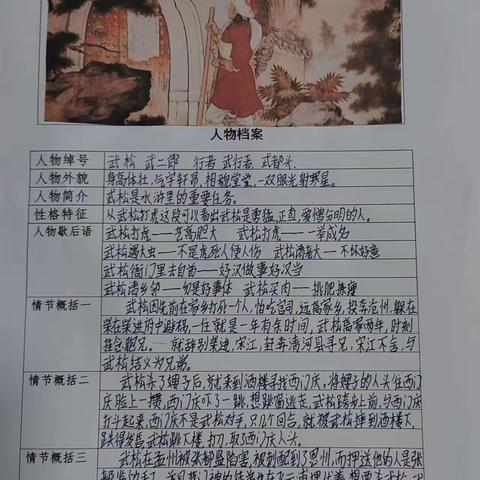 人物档案
人物绰号 武松 武二郎 行者 武行者 武都头
人物外貌 身高体壮，气宇轩昂，相貌堂堂，一双眼光射寒星。
人物简介 武松是水浒里的重要任务。
性格特征 从武松打虎这段可以看出武松是勇猛，正直，爱憎分明的人。
人物歇后语 武松打虎——艺高胆大 武松打虎——一举成名
武松遇大虫——不是虎死人便人伤 武松
武松衙门里去自首——好汉做事好汉当
武松 武松买肉——挑肥拣瘦
情节概括一 武松因先前在家乡打死一个人，怕吃官司，远离家乡，投奔沧州，躲在
柴在柴进府中避祸，一住就是一年有余时间，武松离家两年，时刻
挂念胞兄。……就辞别柴进，宋江，赶奔清河县寻兄，宋江不舍，与
武松结义为兄弟。
情节概括二 武松杀了嫂子后，就来到酒楼寻找西门庆，将嫂子的人头往西门
庆脸上一掼，西门庆吓了一跳，想跳窗逃走，武松踏步上前，与西门庆
打斗起来，西门庆不是武松对手，只几个回合，就被武松摔到酒楼下，
跌得发昏，武松跳下楼，扑刀，取西门庆人头。
情节概括三 武松在孟州被张都监陷害，被刺配到了恩州，而押送他的人是张